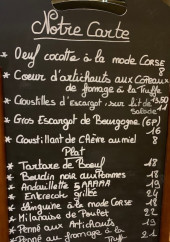 Notre Carte
* Oeuf cocotte à la mode CORSE
8
* Coeur d'artichauts aux COPEAUX
de fromage à la Truffe
* Croustilles d'Escargot, sur lit de 13,50
salade 11
* Gros Escargot de Bourgogne (6P)
16
* Croustillant de Chèvre au miel 8
Plat
* Tartare de Boeuf 18
* Boudin noir aux Pommes 18
* Andouillette 5AAAAA 19
* Entrecôte grillée 26
* Linguine à la mode CORSE 18
* Milanaise de Poulet 22
* Penne aux Artichauts
* Penne au fromage à la
Truffe